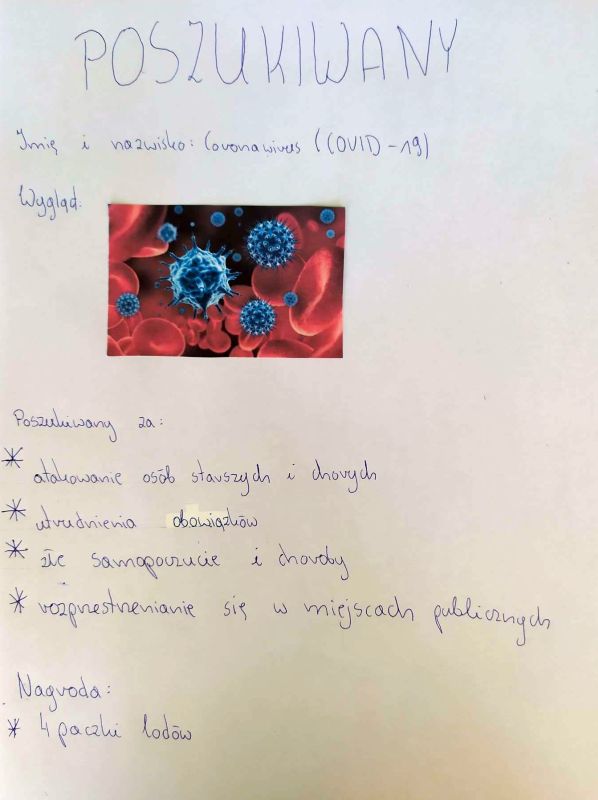 POSZUKIWANY
Imię i nazwisko: Coronawirus (COVID-19)
Wygląd:
Poszukiwany za:
* atakowanie osób starszych i chorych
* utrudnienia obowiązków
* złe samopoczucie i choroby
* rozprzestrzenianie się w miejscach publicznych
Nagroda:
* 4 paczki lodów